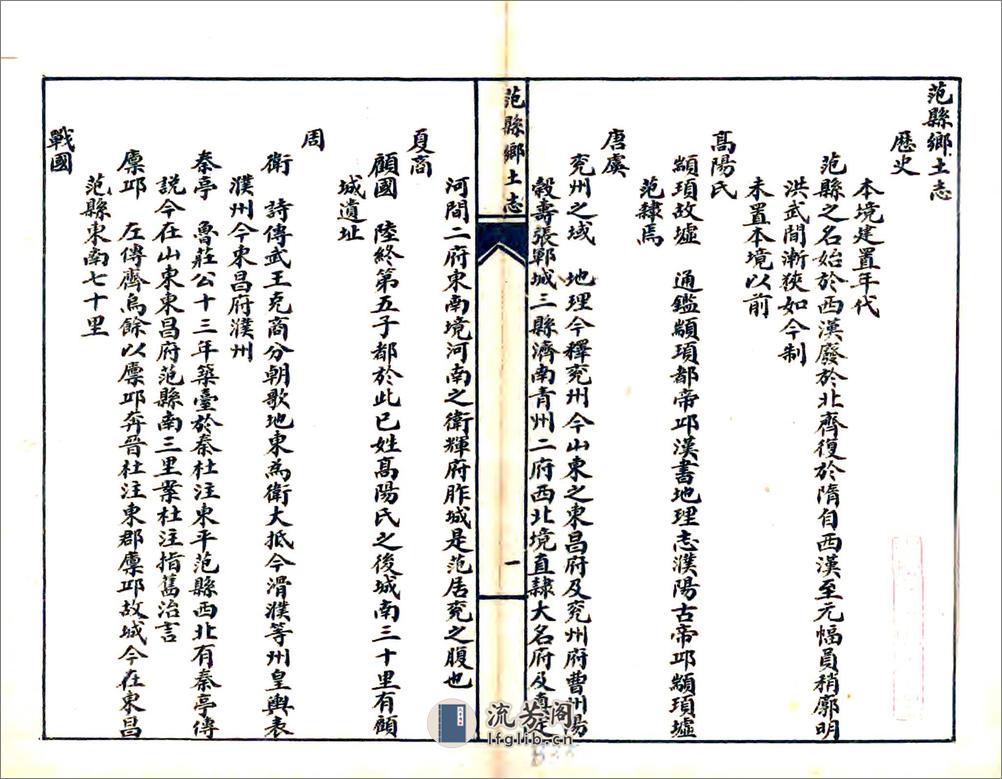 范縣鄉土志
歷史
本境建置年代
范縣之名始於西漢廢於北齊復於隋自西漢至元幅員稍廓明
洪武間漸狹如今制
未置本境以前
高陽氏
顓頊故墟 通鑑顓頊都帝邱漢書地理志濮陽古帝邱顓頊墟
范隸焉
唐虞
兗州之域 地理今釋兗州今山東之東昌府及兗州府曹州陽
穀壽張鄆城三縣濟南青州二府西北境直隸大名府及真定
范縣鄉土志
一
河間二府東南境河南之衛輝府胙城是范居兗之腹也
夏商
顧國 陸終第五子都於此已姓高陽氏之後城南三十里有顧
城遺址
周
衛 詩傳武王克商分朝歌地東為衛大抵今滑濮等州皇輿表
濮州今東昌府濮州
秦亭 魯莊公十三年築臺於秦杜注東平范縣西北有秦亭傳
說今在山東東昌府范縣南三里案杜注指舊治言
廪邱 左傳齊烏餘以廪邱奔晉杜注東郡廪邱故城今在東昌
范縣東南七十里
戰國
流芳阁
lfglib.cn